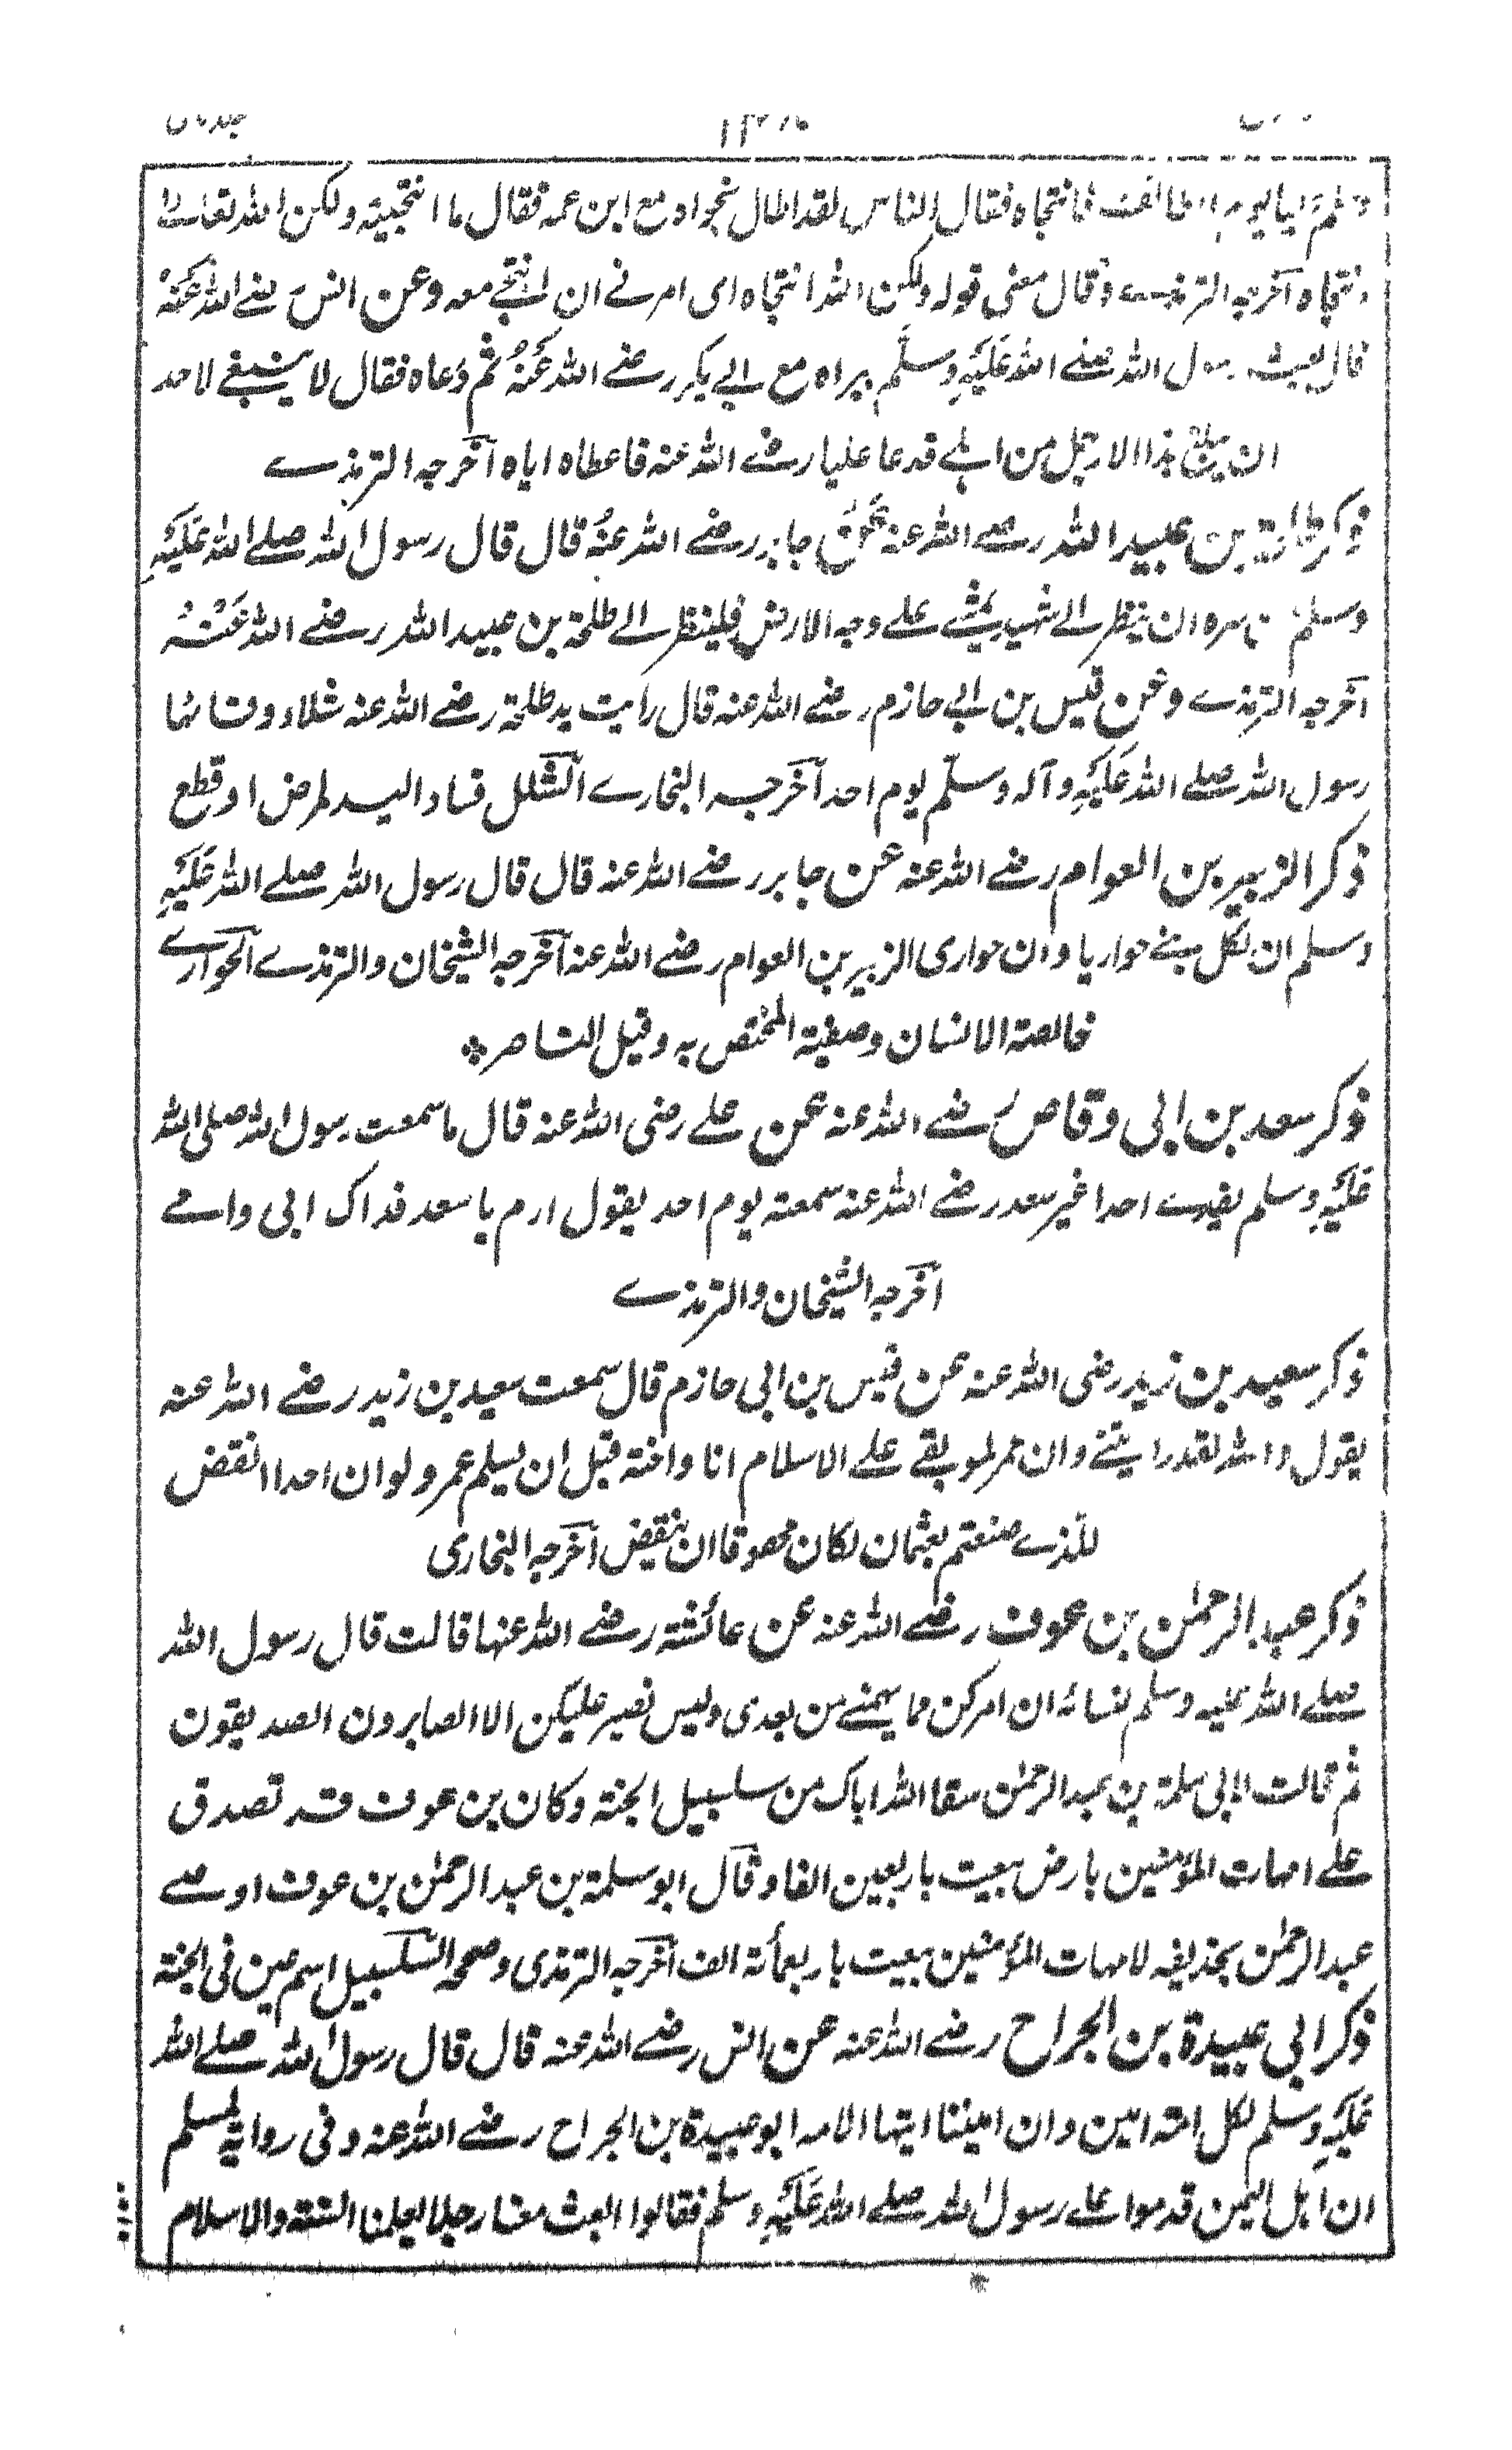 فانتجاه فقال الناس لقد اطال نجواه مع ابن عمه فقال ما انتجيته ولكن الله تعالى
انتجاه آخرجه الترمذے وقال معنى قوله ولكن الله انتجاه اى امرنے ان انتجے معه وعن انس رضے الله عنه
قال بعث رسول الله صلے الله عليه وسلم براه مع ابے بكر رضے الله عنه ثم دعاه فقال لا ينبغے لاحد
ان يبلغ هذا الا رجل من اهلے فدعا عليا رضے الله عنه فاعطاه اياه آخرجه الترمذے
ذكر طلحة بن عبيد الله رضے الله عنه عن جابر رضے الله عنه قال قال رسول الله صلے الله عليه
وسلم من سره ان ينظر الے شهيد يمشے علے وجه الارض فلينظر الے طلحة بن عبيد الله رضے الله عنه
آخرجه الترمذے وعن قيس بن ابے حازم رضے الله عنه قال رايت يد طلحة رضے الله عنه شلاء وقا بها
رسول الله صلے الله عليه وآله وسلم يوم احد آخرجه البخارے الشلل فساد اليد لمرض او قطع
ذكر الزبير بن العوام رضے الله عنه عن جابر رضے الله عنه قال قال رسول الله صلے الله عليه
وسلم ان لكل نبے حواريا وان حوارى الزبير بن العوام رضے الله عنه آخرجه الشيخان والترمذے الحوارے
خالصة الانسان وصفية المختص به وقيل الناصر
ذكر سعد بن ابى وقاص رضے الله عنه عن علے رضى الله عنه قال ما سمعت رسول الله صلى الله
عليه وسلم يفدے احدا غير سعد رضے الله عنه سمعته يوم احد يقول ارم يا سعد فداك ابى وامے
آخرجه الشيخان والترمذے
ذكر سعيد بن زيد رضى الله عنه عن قيس بن ابى حازم قال سمعت سعيد بن زيد رضے الله عنه
يقول والله لقد رايتنے وان عمر لموبقے علے الاسلام انا واخته قبل ان يسلم عمر ولو ان احدا انقض
للذے صنعتم بعثمان لكان محصوقا ان ينقض آخرجه البخارى
ذكر عبد الرحمٰن بن عوف رضے الله عنه عن عائشة رضے الله عنها قالت قال رسول الله
صلے الله عليه وسلم لنسائه ان امركن مما يهمنے من بعدى وليس نصير عليكن الا الصابرون الصديقون
ثم قالت لابى سلمة بن عبد الرحمٰن سقا الله اباك من سلسبيل الجنة وكان بن عوف قد تصدق
علے امهات المؤمنين بارض بيعت باربعين الفا وقال ابو سلمة بن عبد الرحمٰن بن عوف اوصے
عبد الرحمٰن بحديقه لامهات المؤمنين بيعت باربعمائة الف آخرجه الترمذى وصححه السلسبيل اسم عين فى الجنة
ذكر ابى عبيدة بن الجراح رضے الله عنه عن انس رضے الله عنه قال قال رسول الله صلے الله
عليه وسلم لكل امته امين وان اميننا ايتها الامه ابو عبيدة بن الجراح رضے الله عنه وفى رواية لمسلم
ان اهل اليمن قدموا علے رسول الله صلے الله عليه وسلم فقالوا ابعث معنا رجلا يعلمنا السنة والاسلام